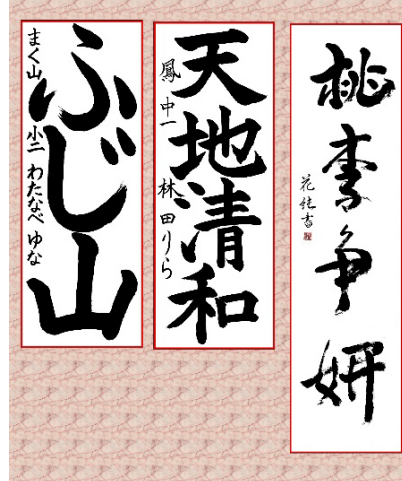 桃李争妍
花純書
天地清和
鳳 中一 林田りら
ふじ山
まく山 小二 わたなべ ゆな